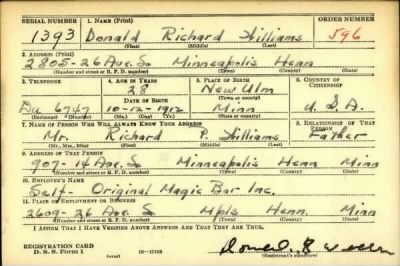 SERIAL NUMBER 1. NAME (Print) ORDER NUMBER
1393 Donald Richard Williams 596
(First) (Middle) (Last)
2. ADDRESS (Print)
2805-26 Ave. So Minneapolis Henn Minn
(Number and street or R. F. D. number) (Town) (County) (State)
3. TELEPHONE 4. AGE IN YEARS 5. PLACE OF BIRTH 6. COUNTRY OF CITIZENSHIP
28 New Ulm
DATE OF BIRTH (Town or county)
Du 6747 10-12-1912 Minn U.S.A.
(Exchange) (Number) (Mo.) (Day) (Yr.) (State or country)
7. NAME OF PERSON WHO WILL ALWAYS KNOW YOUR ADDRESS 8. RELATIONSHIP OF THAT PERSON
Mr. Richard P. Williams Father
(Mr., Mrs., Miss) (First) (Middle) (Last)
9. ADDRESS OF THAT PERSON
907-14 Ave. So Minneapolis Henn Minn
(Number and street or R. F. D. number) (Town) (County) (State)
10. EMPLOYER'S NAME
Self- Original Magic Bar Inc.
11. PLACE OF EMPLOYMENT OR BUSINESS
2609-26 Ave. So Mpls Henn. Minn
(Number and street or R. F. D. number) (Town) (County) (State)
I AFFIRM THAT I HAVE VERIFIED ABOVE ANSWERS AND THAT THEY ARE TRUE.
REGISTRATION CARD
D. S. S. FORM 1 (over)